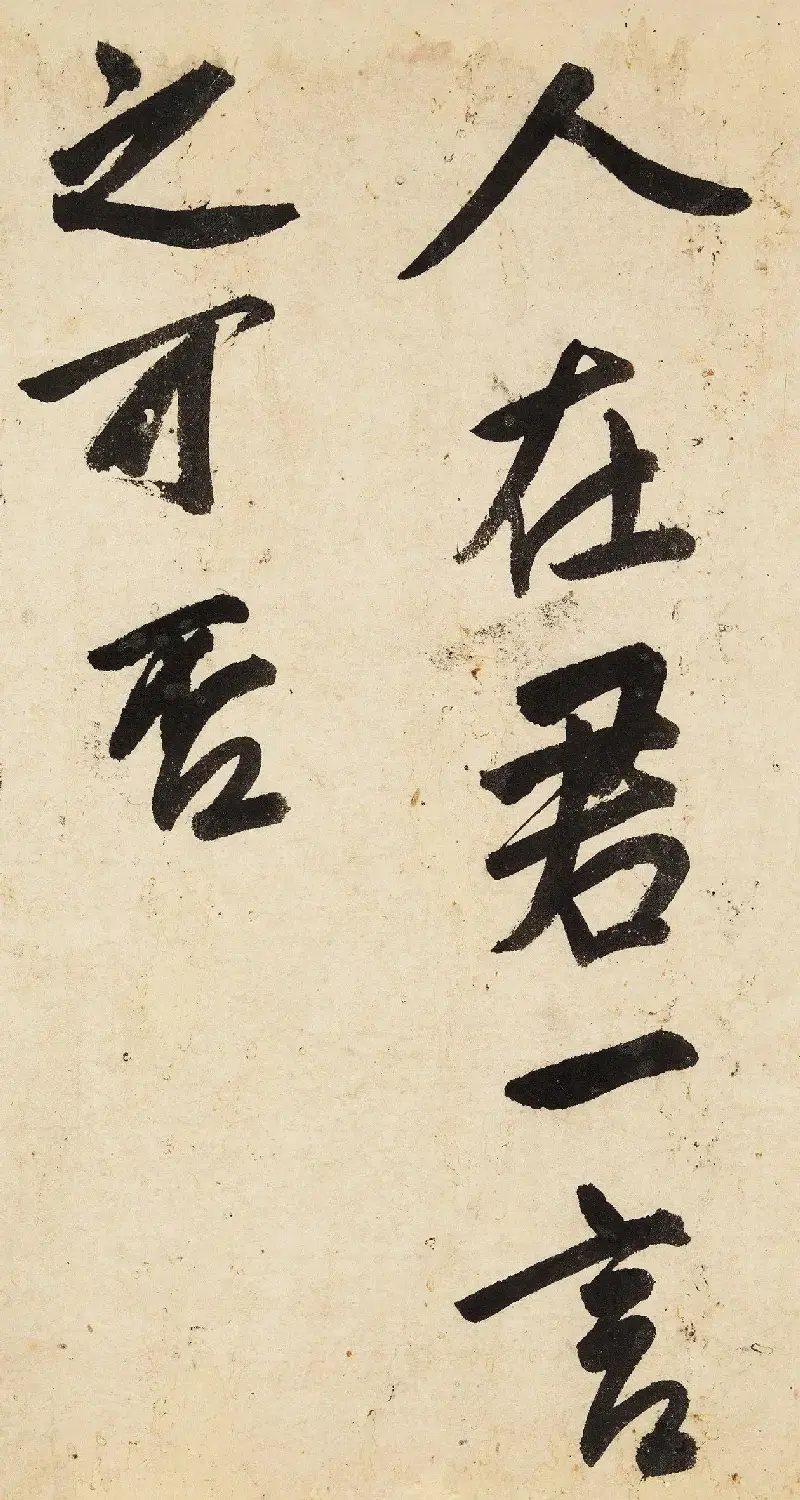 人在君一言
之可否